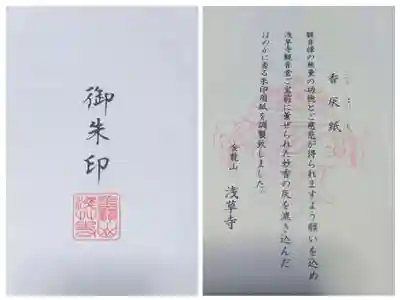 御朱印
香灰紙
観音様の無量の功徳とご慈悲が得られますよう願いを込め
浅草寺観音堂ご宝前に薫ぜられた妙香の灰を漉き込んだ
ほのかに香る朱印用紙を調製致しました。
金龍山 浅草寺